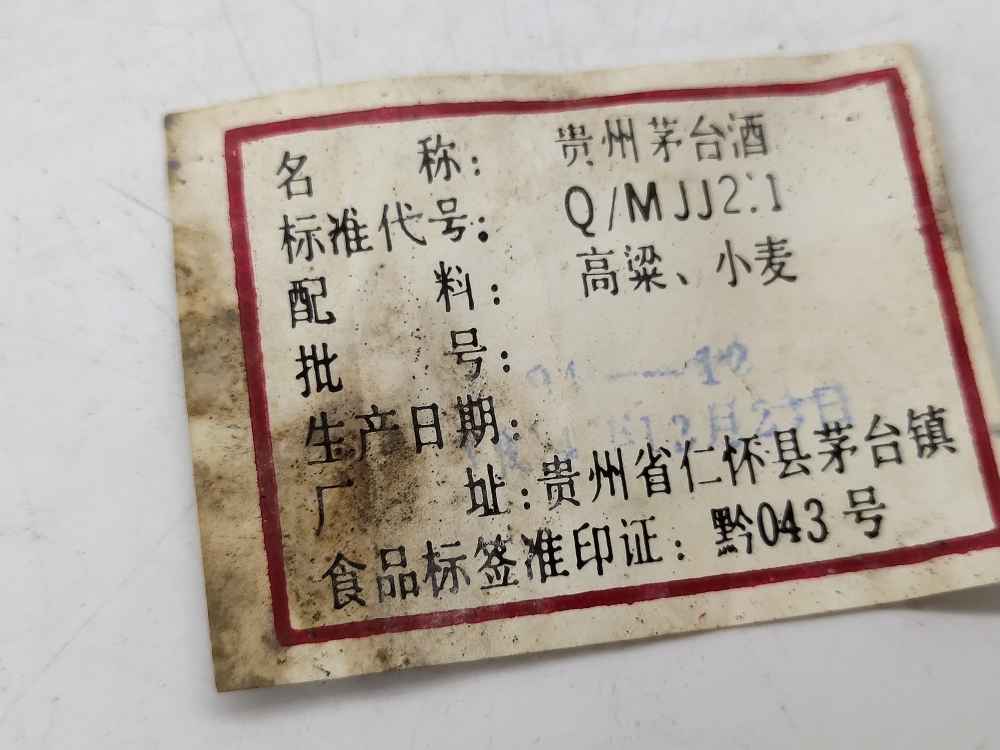 名 称: 贵州茅台酒
标准代号: Q/MJJ2.1
配 料: 高粱、小麦
批 号: 91—12
生产日期: 12月27日
厂 址: 贵州省仁怀县茅台镇
食品标签准印证: 黔043号